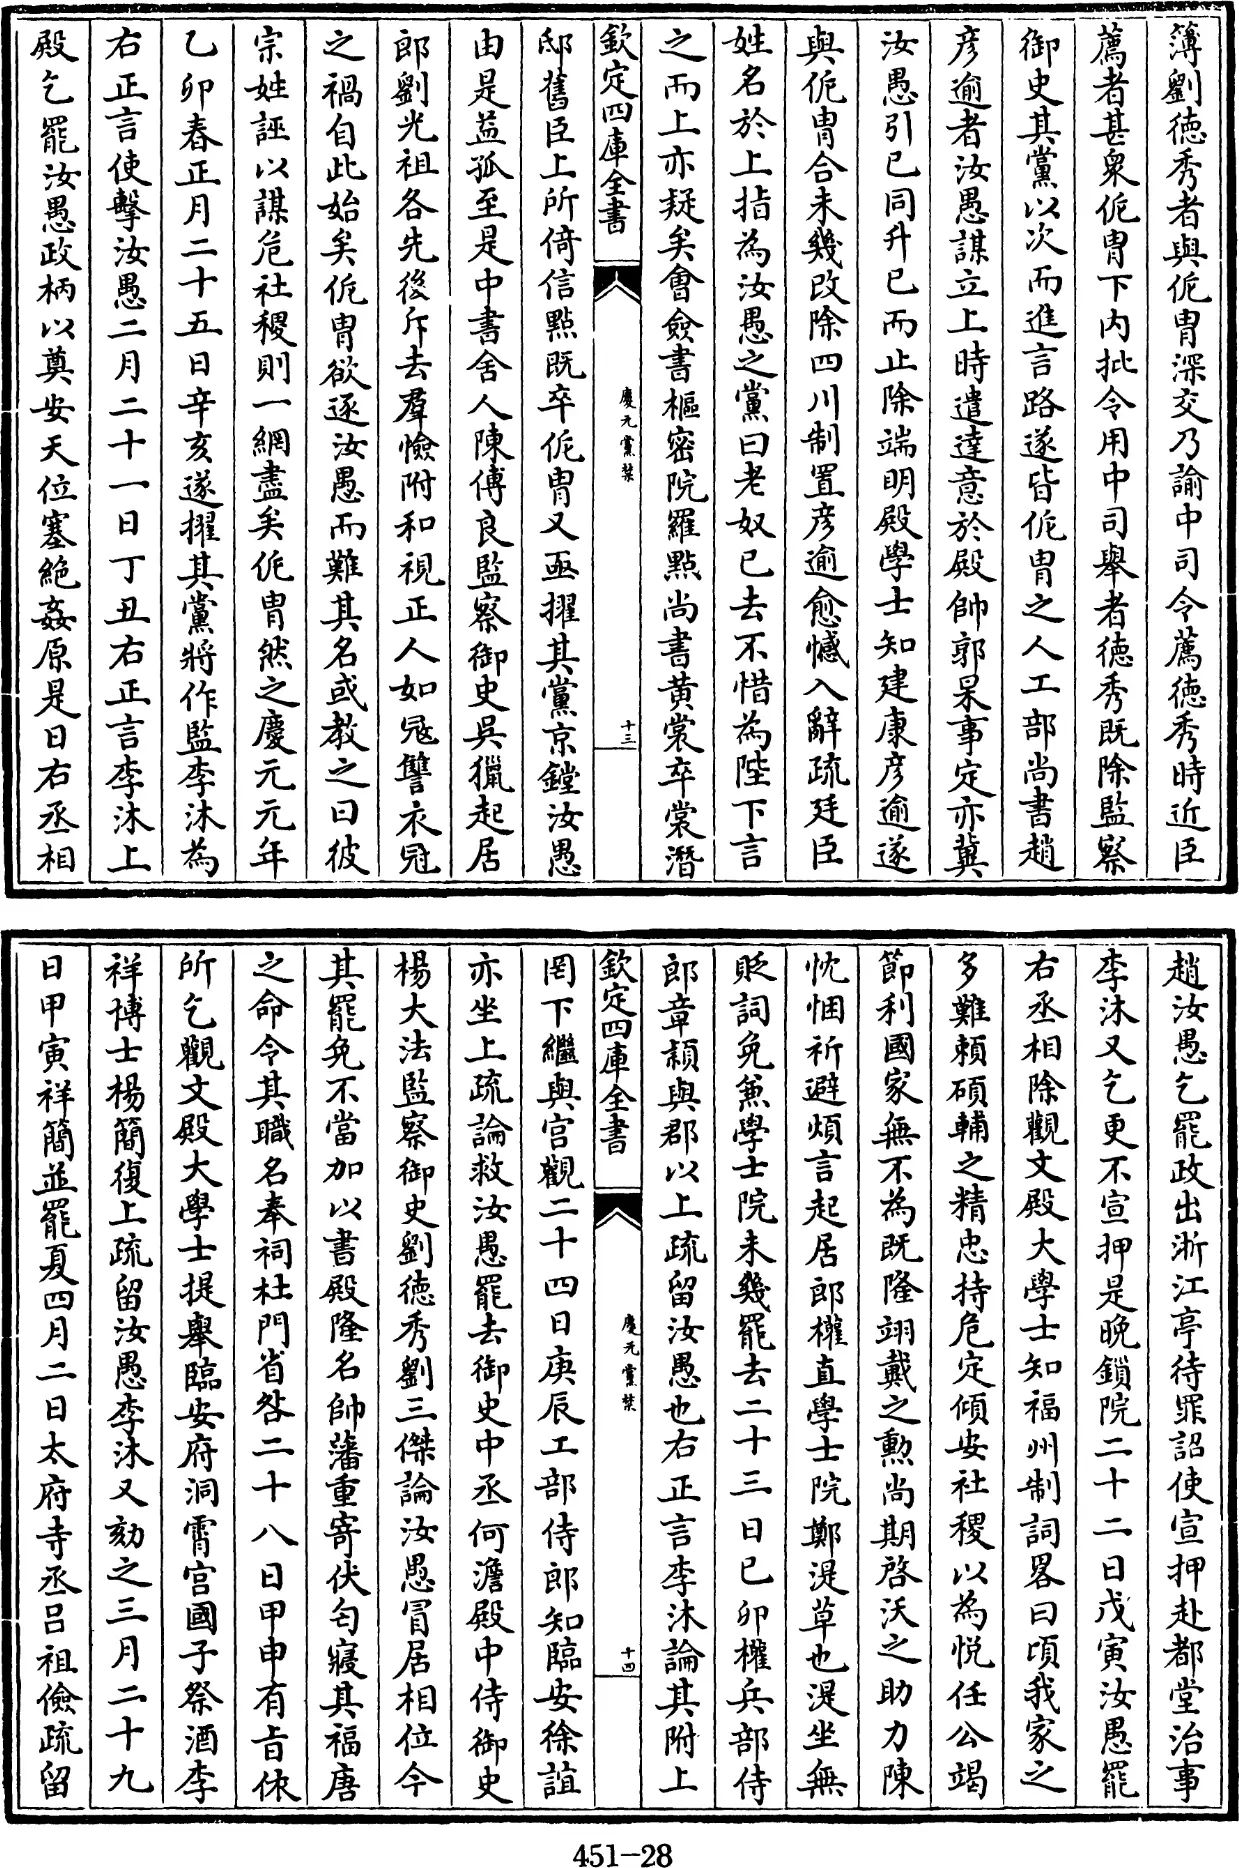 簿劉德秀者與侂胄深交乃諭中司令薦德秀時近臣
薦者甚衆侂胄下内批令用中司舉者德秀既除監察
御史其黨以次而進言路遂皆侂胄之人工部尚書趙
彦逾者汝愚謀立上時遣達意於殿帥郭杲事定亦冀
汝愚引已同升已而止除端明殿學士知建康彦逾遂
與侂胄合未幾改除四川制置彦逾愈憾入辭疏廷臣
姓名於上指為汝愚之黨曰老奴已去不惜為陛下言
之而上亦疑矣會僉書樞密院羅㸃尚書黄裳卒裳潛
欽定四庫全書
慶元黨禁
十三
邸舊臣上所倚信㸃既卒侂胄又亟擢其黨京鏜汝愚
由是益孤至是中書舍人陳傅良監察御史吳獵起居
郎劉光祖各先後斥去羣憸附和視正人如冦讐衣冠
之禍自此始矣侂胄欲逐汝愚而難其名或教之曰彼
宗姓誣以謀危社稷則一網盡矣侂胄然之慶元元年
乙卯春正月二十五日辛亥遂擢其黨將作監李沐為
右正言使擊汝愚二月二十一日丁丑右正言李沐上
殿乞罷汝愚政柄以奠安天位塞絶姦原是日右丞相
趙汝愚乞罷政出浙江亭待罪詔使宣押赴都堂治事
李沐又乞更不宣押是晩鎖院二十二日戊寅汝愚罷
右丞相除觀文殿大學士知福州制詞畧曰頃我家之
多難頼碩輔之精忠持危定傾安社稷以為悦任公竭
節利國家無不為既隆翊戴之勲尚期啓沃之助力陳
忱悃祈避煩言起居郎權直學士院鄭湜草也湜坐無
貶詞免兼學士院未幾罷去二十三日已卯權兵部侍
郎章頴與郡以上疏留汝愚也右正言李沐論其附上
欽定四庫全書
慶元黨禁
十四
罔下繼與宫觀二十四日庚辰工部侍郎知臨安徐誼
亦坐上疏論救汝愚罷去御史中丞何澹殿中侍御史
楊大法監察御史劉德秀劉三傑論汝愚冒居相位今
其罷免不當加以書殿隆名帥藩重寄伏匄寢其福唐
之命令其職名奉祠杜門省咎二十八日甲申有㫖依
所乞觀文殿大學士提舉臨安府洞霄宫國子祭酒李
祥博士楊簡復上疏留汝愚李沐又劾之三月二十九
日甲寅祥簡並罷夏四月二日太府寺丞吕祖儉疏留
451-28